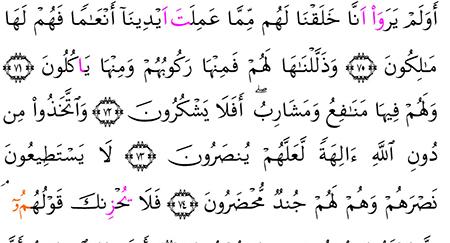 أَوَلَمْ يَرَوَاْ اَنَّا خَلَقْنَا لَهُم مِّمَّا عَمِلَتَ اَيْدِينَآ أَنْعَٰمًا فَهُمْ لَهَا
مَٰلِكُونَ ٧٠ وَذَلَّلْنَٰهَا لَهُمْ فَمِنْهَا رَكُوبُهُمْ وَمِنْهَا يَاكُلُونَ ٧١
وَلَهُمْ فِيهَا مَنَٰفِعُ وَمَشَارِبُۖ أَفَلَا يَشْكُرُونَ ٧٢ وَاتَّخَذُواْ مِن
دُونِ اللَّهِ ءَالِهَةً لَّعَلَّهُمْ يُنصَرُونَ ٧٣ لَا يَسْتَطِيعُونَ
نَصْرَهُمْ وَهُمْ لَهُمْ جُندٌ مُّحْضَرُونَ ٧٤ فَلَا يُحْزِنكَ قَوْلُهُمُۥٓۖ